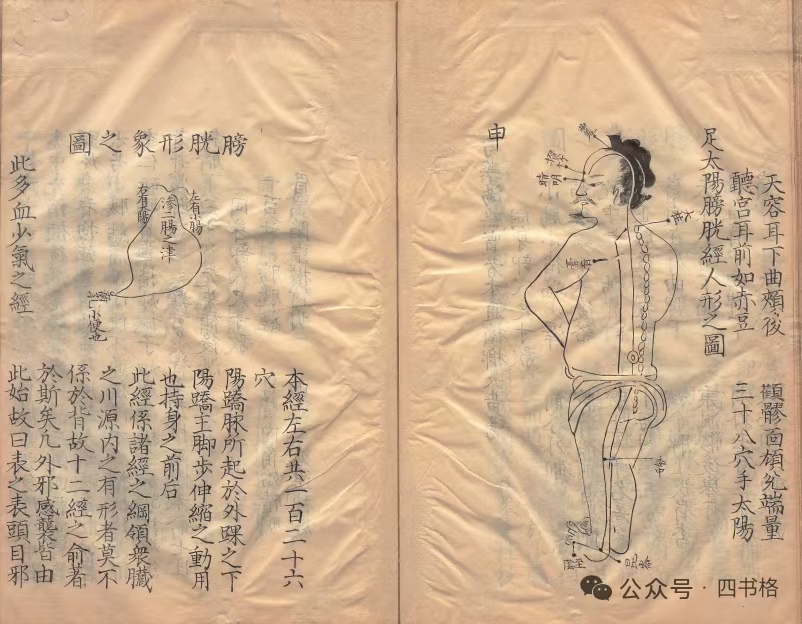 天容耳下曲頰後　顴髎面頄兊端量
聽宮耳前如赤荳　三十八穴手太陽
足太陽膀胱經人形之圖
攢竹
睛明
大杼
膏肓
委中
至陰
申
膀胱形象之圖
左有小腸
滲二腸之津
右有大腸
小便也
本經左右共一百二十六
穴
陽蹻脉所起於外踝之下
陽蹻主脚步伸縮之動用
也持身之前后
此經係諸經之綱領衆臟
之川源內之有形者莫不
係於背故十二經之俞著
於斯矣凡外邪感襲皆由
此多血少氣之經
此始故曰表之表頭目邪
公众号 · 四书格